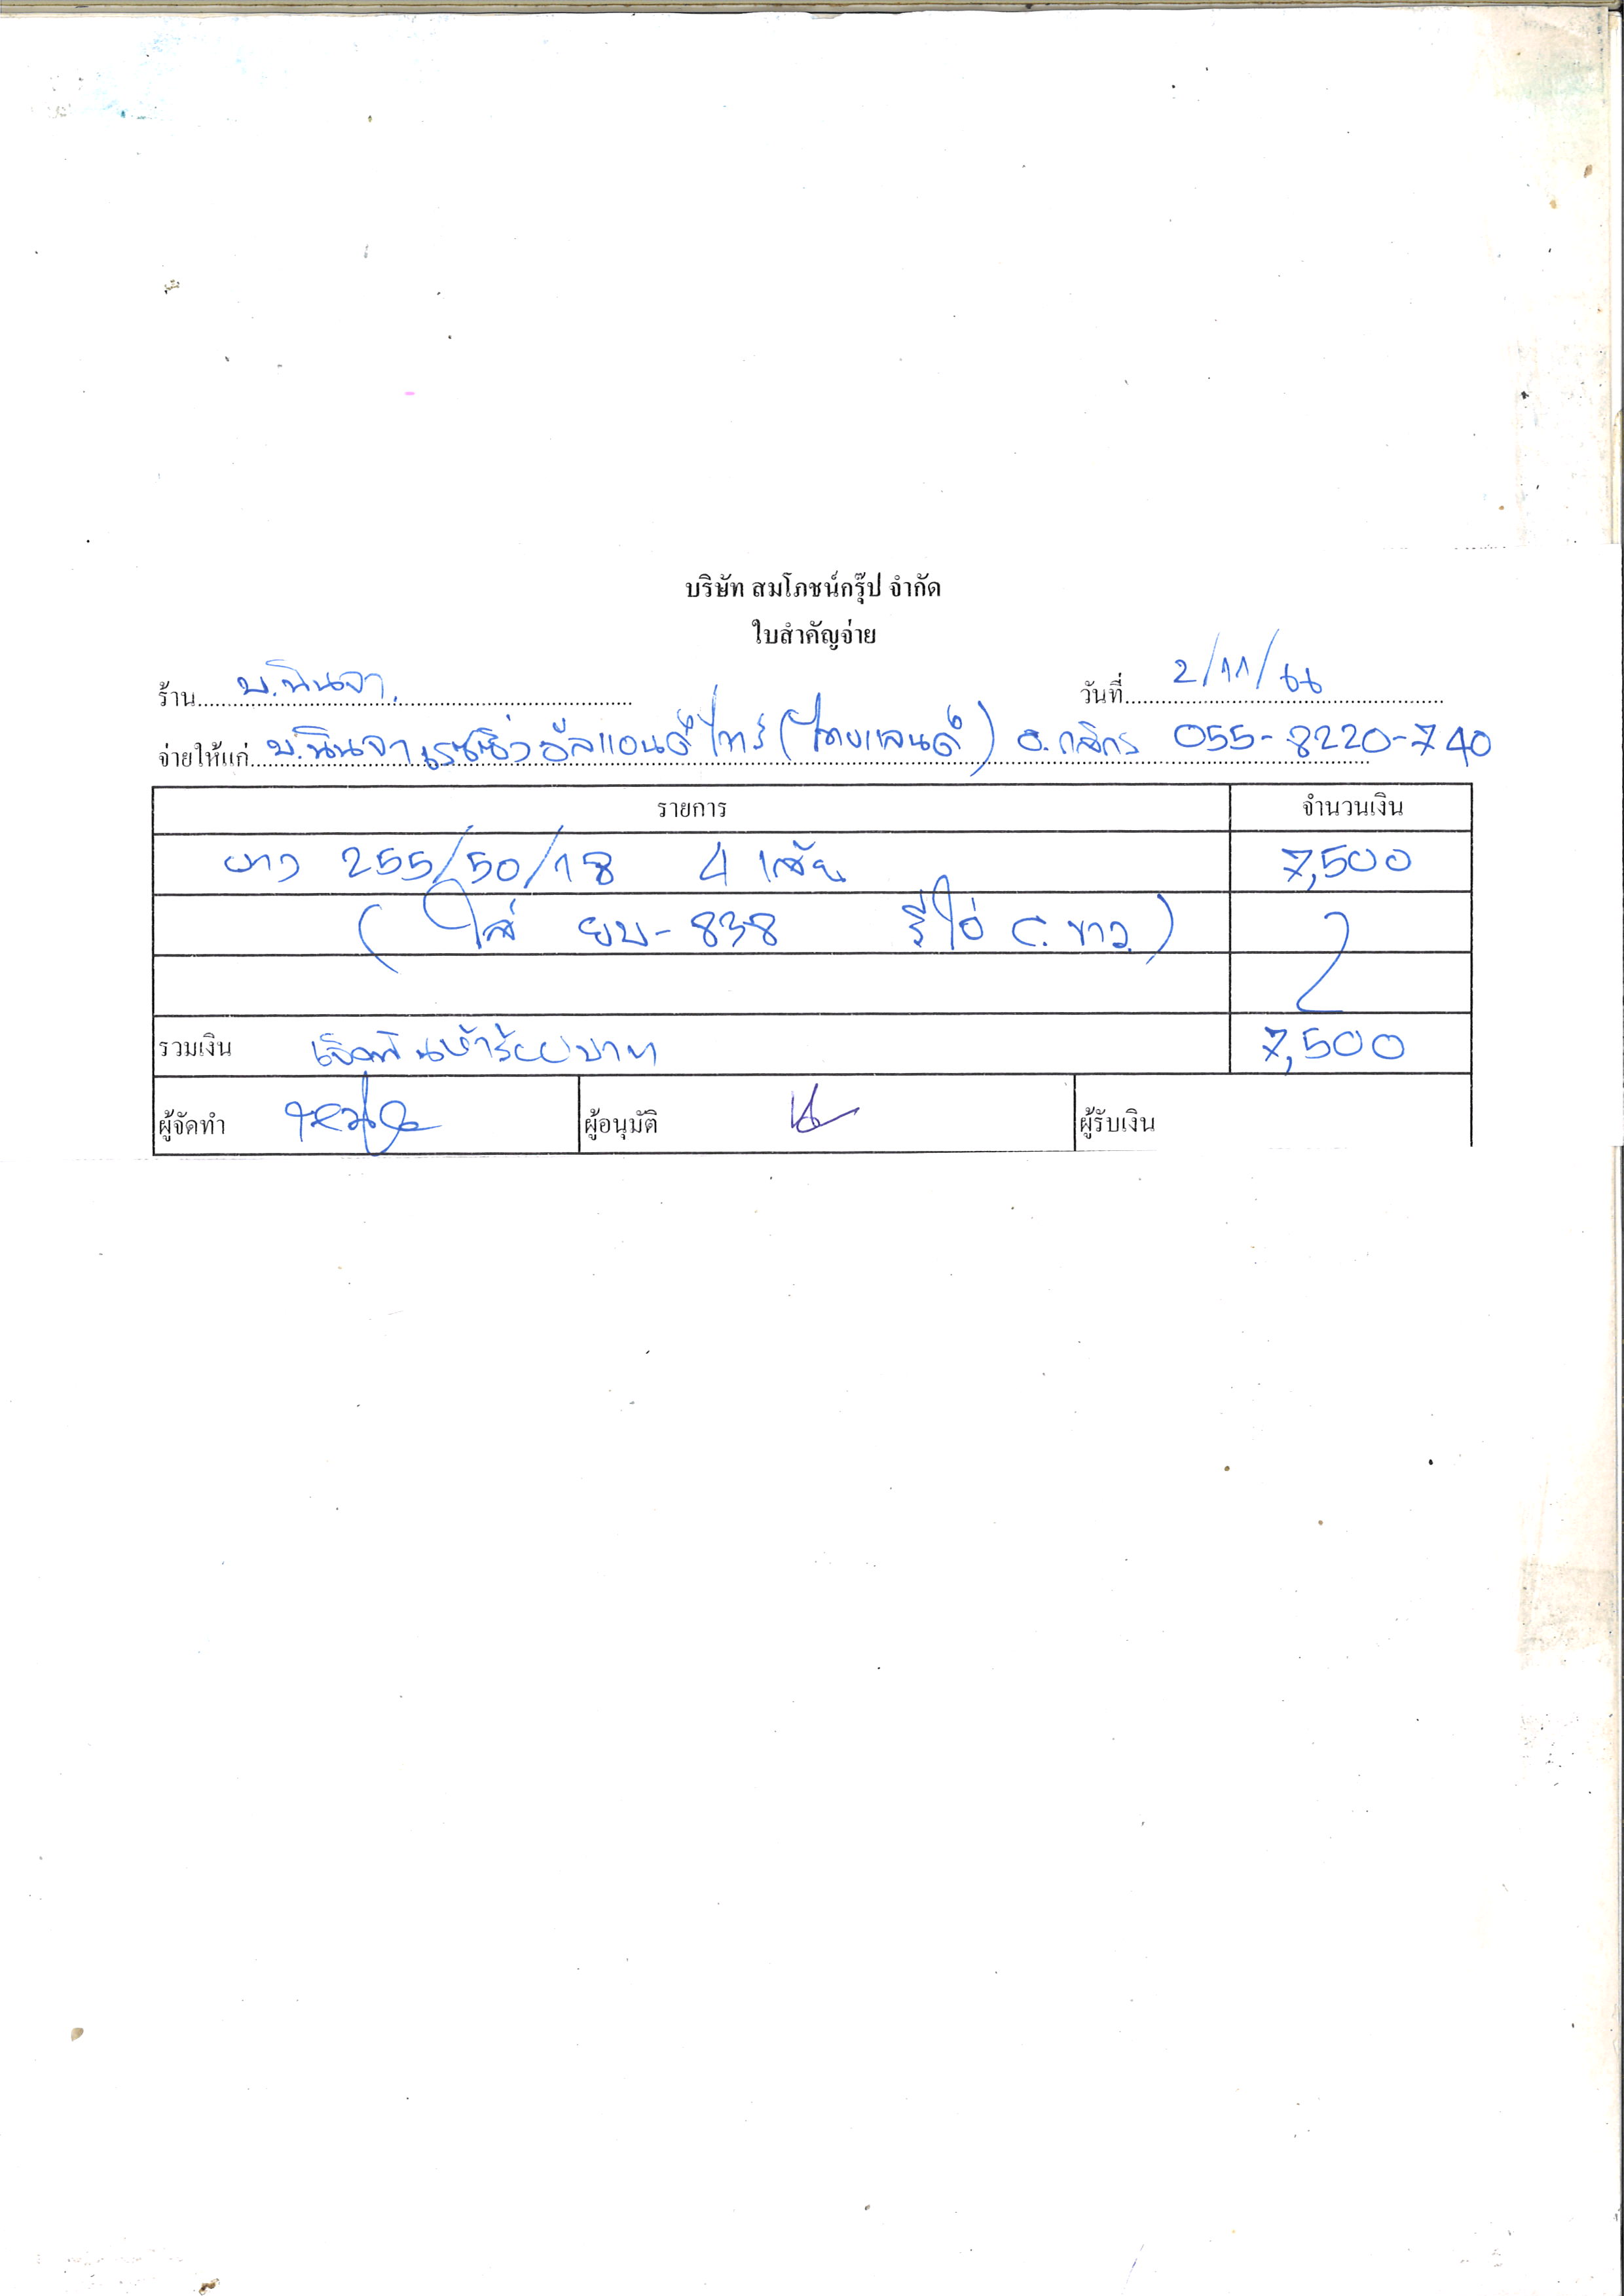 บริษัท สมโภชน์กรุ๊ป จำกัด
ใบสำคัญจ่าย
ร้าน บ.นินจา. วันที่ 2/11/66
จ่ายให้แก่ บ.นินจา เรซซิ่ง อัลแอนด์ ไทร์ (ไทยแลนด์) ธ.กสิกร 055-8220-740
รายการ จำนวนเงิน
ยาง 255/50/18 4 เส้น 7,500
(ใส่ ยบ-838 รีโว่ C. ขาว)
รวมเงิน เจ็ดพันห้าร้อยบาท 7,500
ผู้จัดทำ ผู้อนุมัติ ผู้รับเงิน